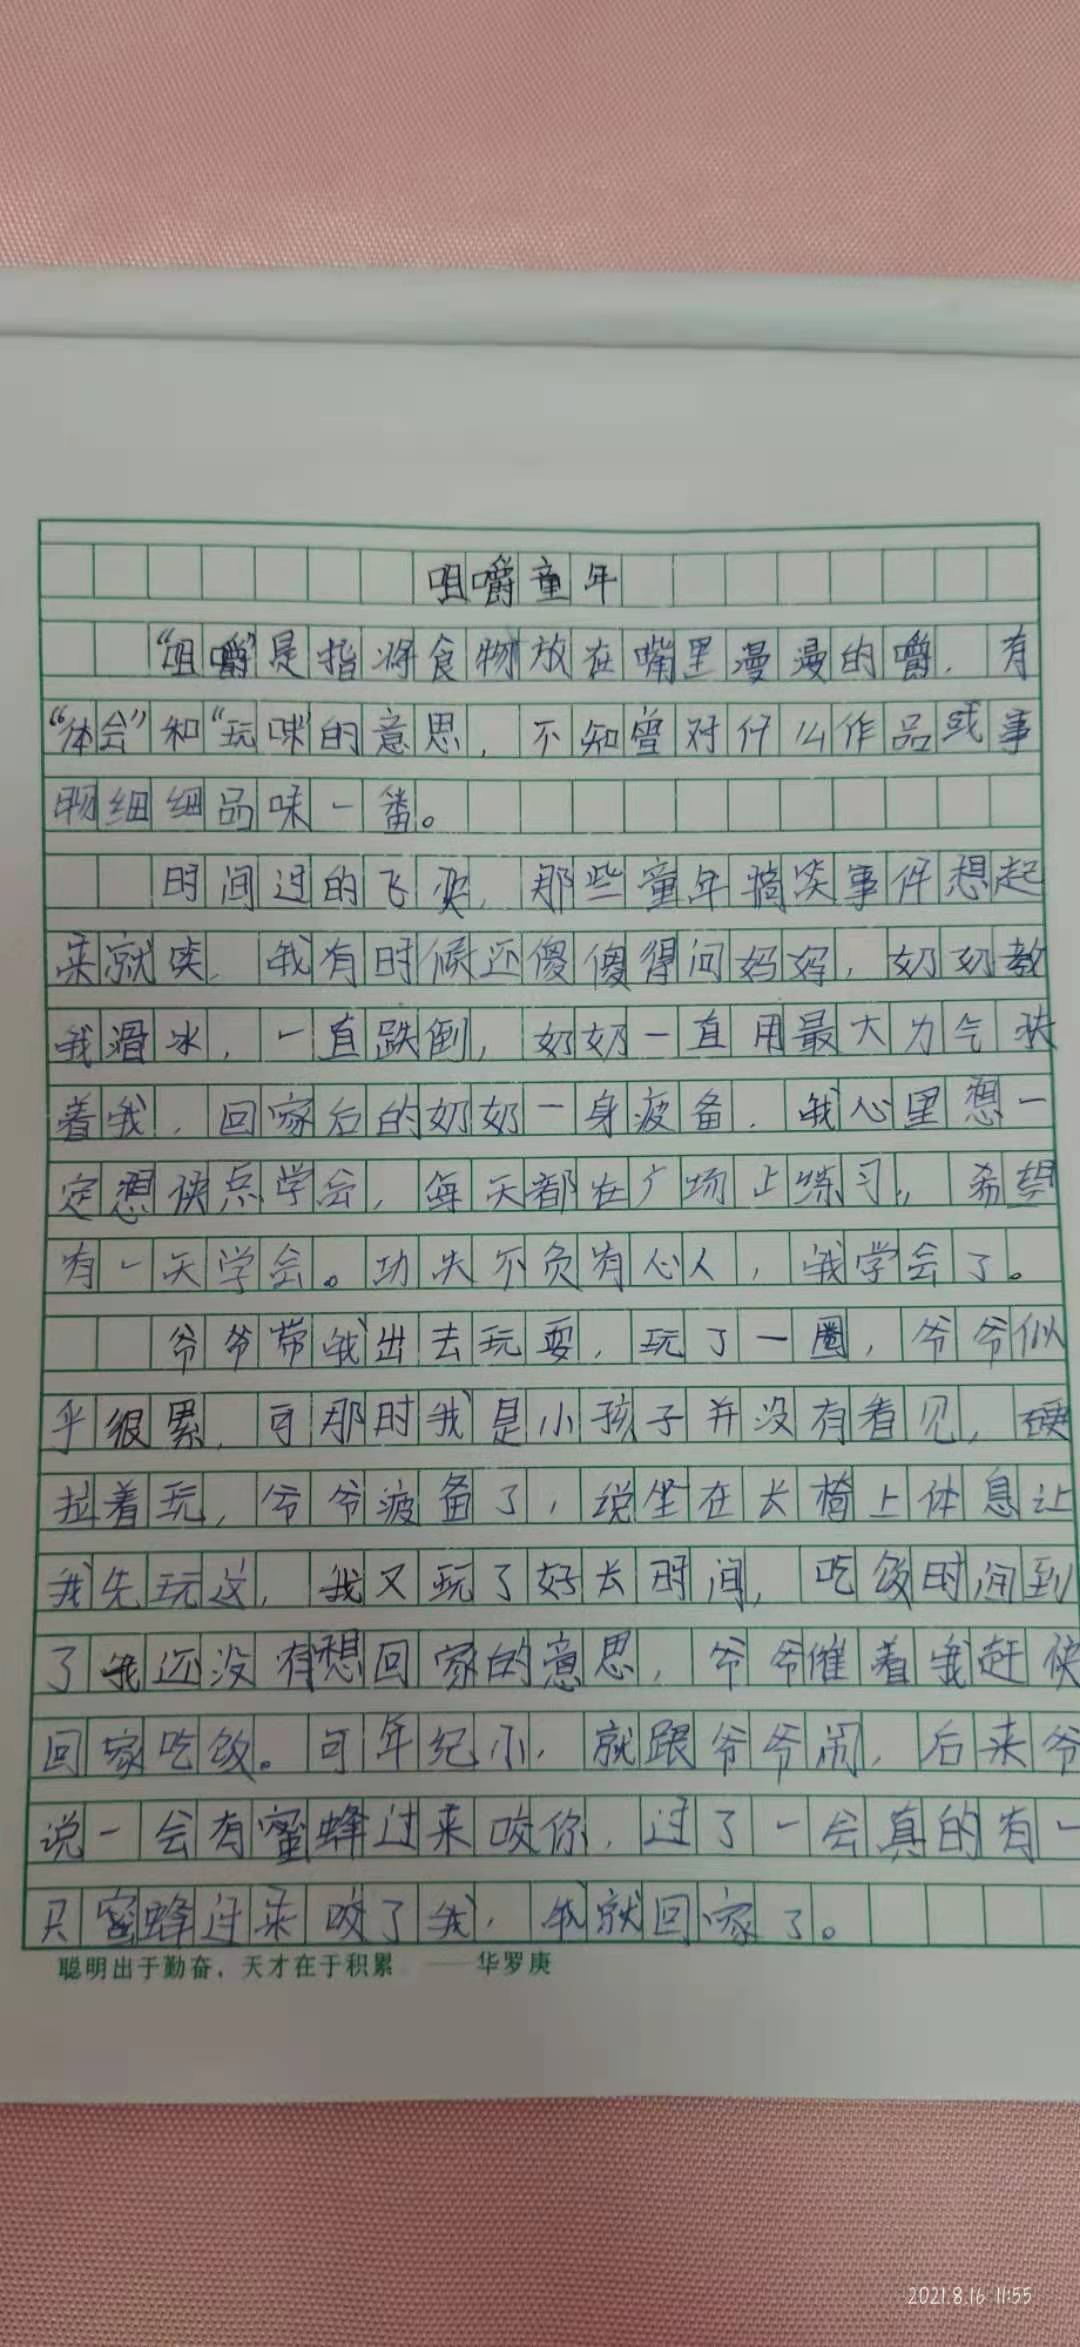 咀嚼童年
“咀嚼”是指将食物放在嘴里漫漫的嚼，有
“体会”和“玩味”的意思，不知曾对什么作品或事
物细细品味一番。
时间过的飞快，那些童年搞笑事件想起
来就笑，我有时候还傻傻得问妈妈，奶奶教
我滑冰，一直跌倒，奶奶一直用最大力气扶
着我，回家后的奶奶一身疲备，我心里想一
定想快点学会，每天都在广场上练习，希望
有一天学会。功夫不负有心人，我学会了。
爷爷带我出去玩耍，玩了一圈，爷爷似
乎很累，可那时我是小孩子并没有看见，硬
拉着玩，爷爷疲备了，说坐在长椅上休息让
我先玩这，我又玩了好长时间，吃饭时间到
了我还没有想回家的意思，爷爷催着我赶快
回家吃饭。可年纪小，就跟爷爷闹，后来爷
说一会有蜜蜂过来咬你，过了一会真的有一
只蜜蜂过来咬了我，我就回家了。
聪明出于勤奋，天才在于积累 ——华罗庚
2021.8.16 11:55